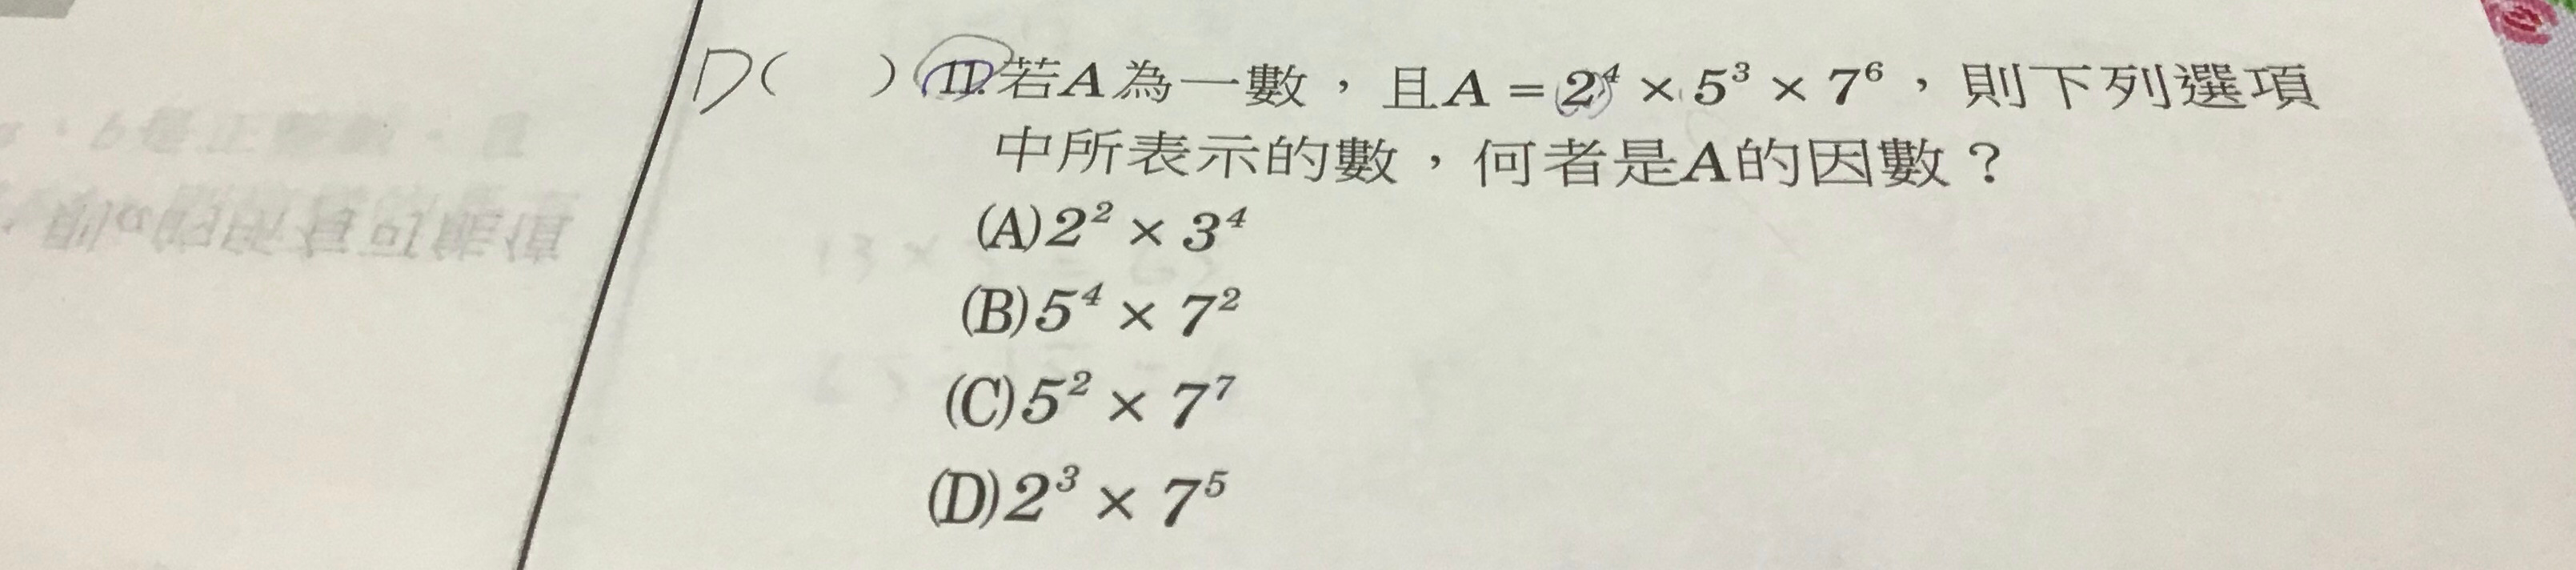 D(　)11.若A為一數，且A = 2⁴ × 5³ × 7⁶，則下列選項
中所表示的數，何者是A的因數？
(A)2² × 3⁴
(B)5⁴ × 7²
(C)5² × 7⁷
(D)2³ × 7⁵